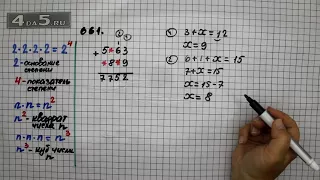 4da5.RU
2·2·2·2=2⁴
2-основание
степени
4-показатель
степени
n·n=n²
n²-квадрат
числа n
n·n·n=n³
n³-куб числа n
861.
② ①
+5*63
*8*9
7752
① 3+x=12
x=9
② 6+1+x=15
7+x=15
x=15-7
x=8